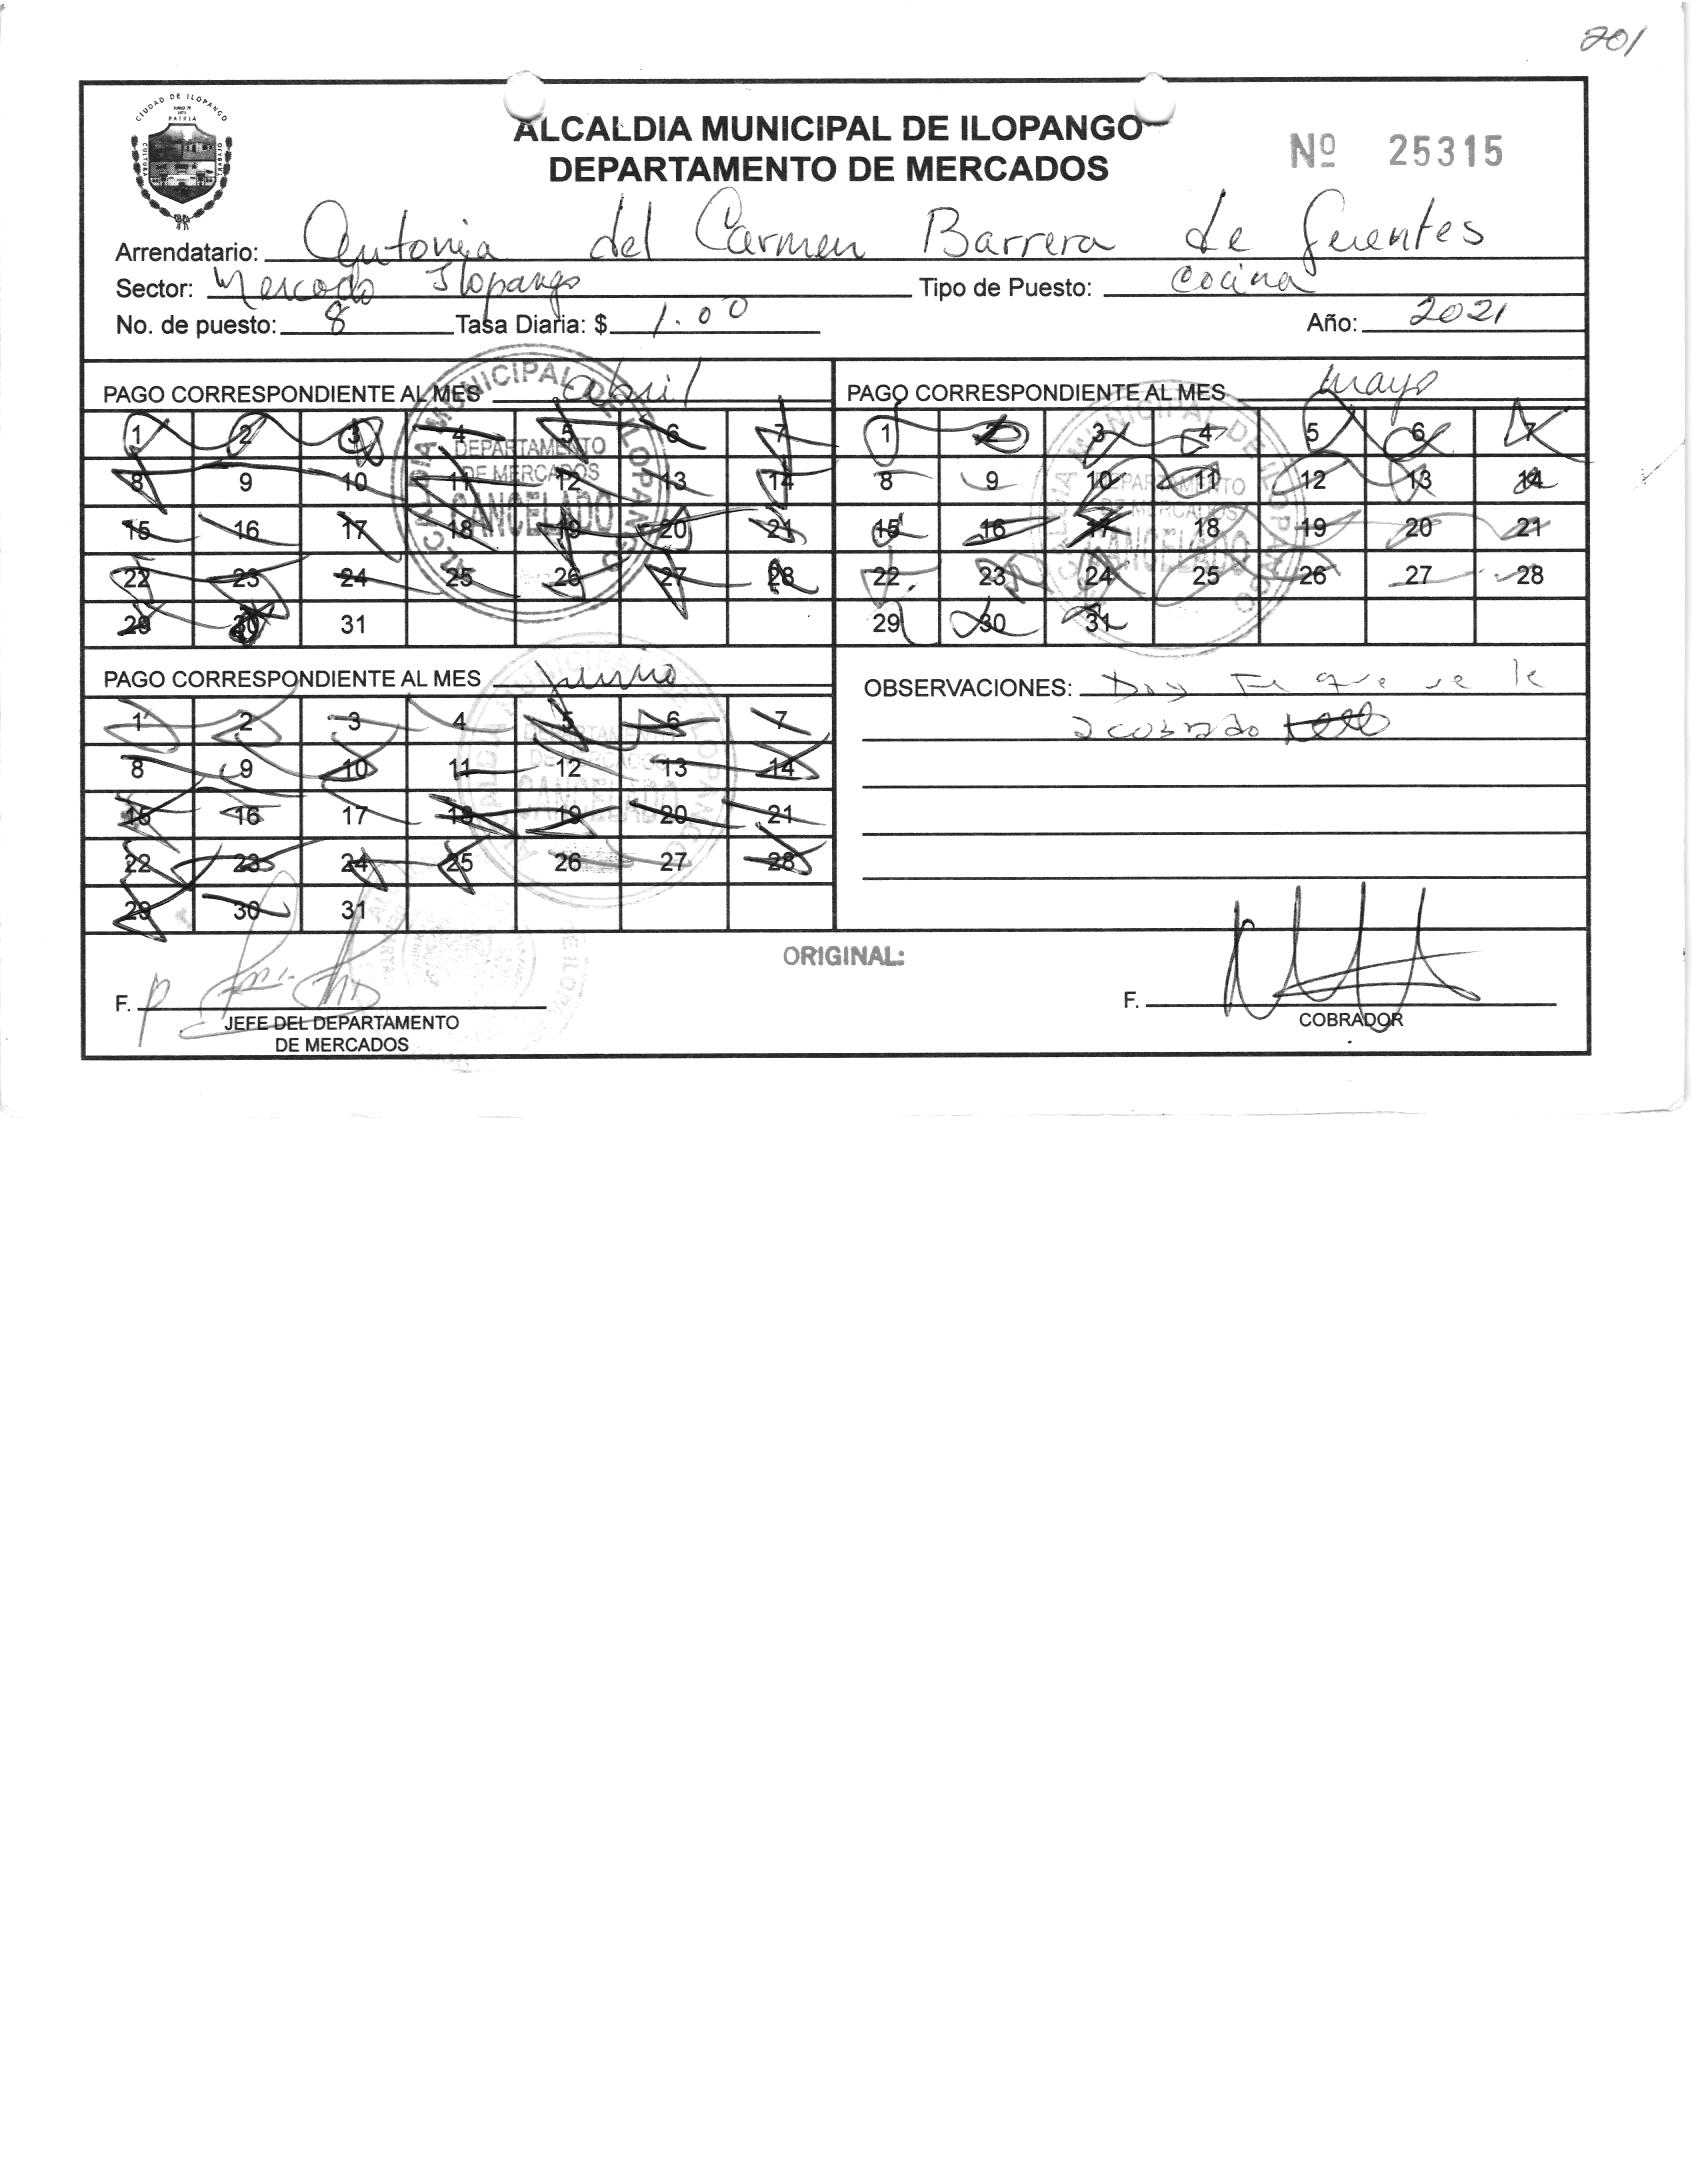 201
CIUDAD DE ILOPANGO
PATRIA
CULTURA
TRABAJO
ALCALDIA MUNICIPAL DE ILOPANGO
DEPARTAMENTO DE MERCADOS
Nº 25315
Arrendatario: Antonia del Carmen Barrera de Fuentes
Sector: Mercado Ilopango Tipo de Puesto: Cocina
No. de puesto: 8 Tasa Diaria: $ 1.00 Año: 2021
PAGO CORRESPONDIENTE AL MES abril
1 2 3 4 5 6 7
8 9 10 11 12 13 14
15 16 17 18 19 20 21
22 23 24 25 26 27 28
29 30 31
ALCALDIA MUNICIPAL DE ILOPANGO
DEPARTAMENTO
DE MERCADOS
CANCELADO
PAGO CORRESPONDIENTE AL MES mayo
1 2 3 4 5 6 7
8 9 10 11 12 13 14
15 16 17 18 19 20 21
22 23 24 25 26 27 28
29 30 31
ALCALDIA MUNICIPAL DE ILOPANGO
DEPARTAMENTO
DE MERCADOS
CANCELADO
PAGO CORRESPONDIENTE AL MES junio
1 2 3 4 5 6 7
8 9 10 11 12 13 14
15 16 17 18 19 20 21
22 23 24 25 26 27 28
29 30 31
ALCALDIA MUNICIPAL DE ILOPANGO
DEPARTAMENTO
DE MERCADOS
CANCELADO
OBSERVACIONES: Doy Fe que se le
a cobrado
ORIGINAL:
F.
JEFE DEL DEPARTAMENTO
DE MERCADOS
F.
COBRADOR